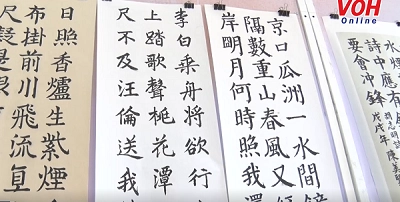 VOH
Online
水煙
詩中應有
要會冲鋒
胡志明詩
戊戌年
京口瓜洲一水間
隔數重山春風又
岸眀月何時照我
李白乘舟將欲行
上踏歌聲桃花潭
尺不及汪倫送我
日照香爐生紫煙
布掛前川飛流直
尺疑是